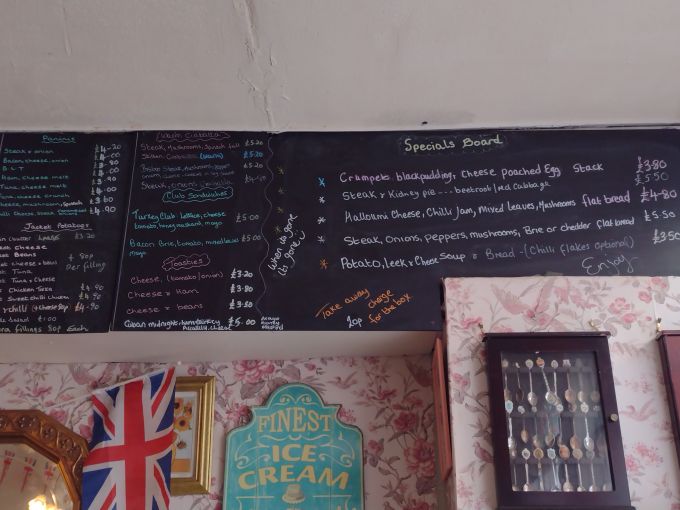 Paninis
Steak & onion £4-20
Bacon, cheese, onion £4.00
B L T £4.00
Ham, cheese melt £3.90
Tuna, cheese melt £4.00
Tuna, cheese crunch £4.00
Cheese, mushrooms, spinach £3.60
Chilli cheese, steak £4.90
Jacket Potatoes
£3.20
Cheese
Beans
Cheese & beans
Tuna
Tuna & cheese
80p
Per filling
Chicken Tikka £4.90
Sweet chilli chicken £4.90
chilli £4.90
Salad £1.00
Extra fillings 80p Each
Warm Ciabatta
Steak, Mushrooms, Spinach £5.20
£5.20
£5.20
Steak, onions
Club Sandwiches
Turkey Club lettuce, cheese £5.00
tomato, honey mustard, mayo
Bacon Brie, tomato, mixed leaves £5.00
mayo
Toasties
Cheese, (tomato/onion) £3.20
Cheese & Ham £3.80
cheese & beans £3.50
Cuban midnight, ham turkey £5.00
Piccalilli, cheese
When its gone
its gone
Specials Board
Crumpets blackpudding, cheese poached Egg Stack £3.80
Steak & Kidney pie --- beetroot, Red Cabbage £5.50
Halloumi Cheese, Chilli Jam, Mixed leaves, Mushrooms flat bread £4-80
Steak, Onions, Peppers, mushrooms, Brie or chedder flat bread £5.50
Potato, Leek & Cheese Soup & Bread - (Chilli flakes optional) £3.50
Enjoy
Take away charge
20p for the box
FINEST
ICE
CREAM